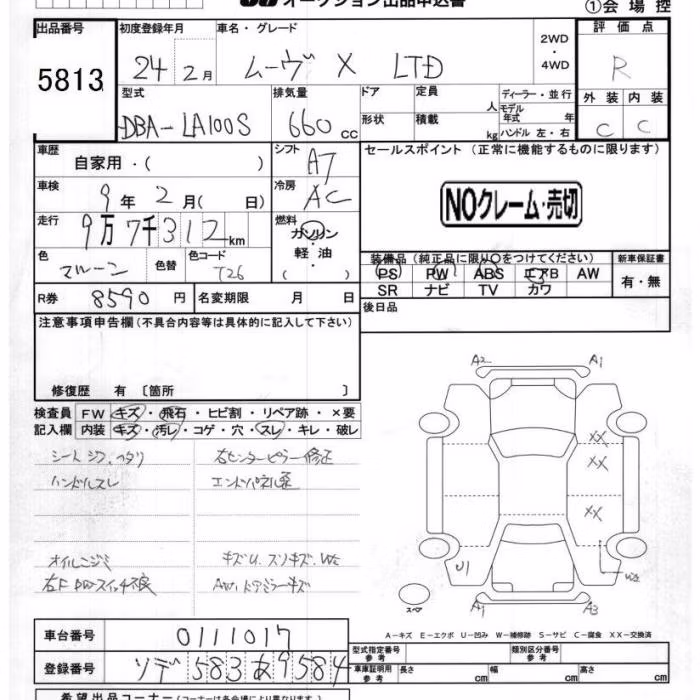 オークション出品申込書
①会場控
出品番号 初度登録年月 車名・グレード 評価点
5813 24年2月 ムーヴ X LTD 2WD・4WD R
型式 排気量 ドア 定員 人 ディーラー・並行 外装 内装
DBA-LA100S 660cc 形状 積載 kg モデル年式 年 ハンドル 左・右 C C
車歴 自家用・( ) シフト AT セールスポイント (正常に機能するものに限ります)
車検 9年2月( 日) 冷房 AC NOクレーム・売切
走行 9万7千312km 燃料 ガソリン・軽油・( )
色 マルーン 色替 色コード T26
装備品(純正品に限り○をつけてください) 新車保証書
PS PW ABS エアB AW 有・無
SR ナビ TV カワ
R券 8590円 名変期限 月 日 後日品
注意事項申告欄(不具合内容等は具体的に記入して下さい)
修復歴 有 〔箇所 〕
検査員 FW キズ・飛石・ヒビ割・リペア跡・×要
記入欄 内装 キズ・汚レ・コゲ・穴・スレ・キレ・破レ
右センターピラー修正
ハンドルスレ エンドパネル歪
オイルニジミ キズU.スソキズ.W2
右F PWスイッチ不良 AW.ドアミラーキズ
A2 A1
XX
XX
XX
U1 W2
スペア A1 A3
A-キズ E-エクボ U-凹み W-補修跡 S-サビ C-腐食 XX-交換済
車台番号 0111017 型式指定番号 参考 類別区分番号 参考
登録番号 ソデ583あ9584 車庫証明用 参考 長さ cm 幅 cm 高さ cm
希望出品コーナー(コーナーは各会場により異なります。)